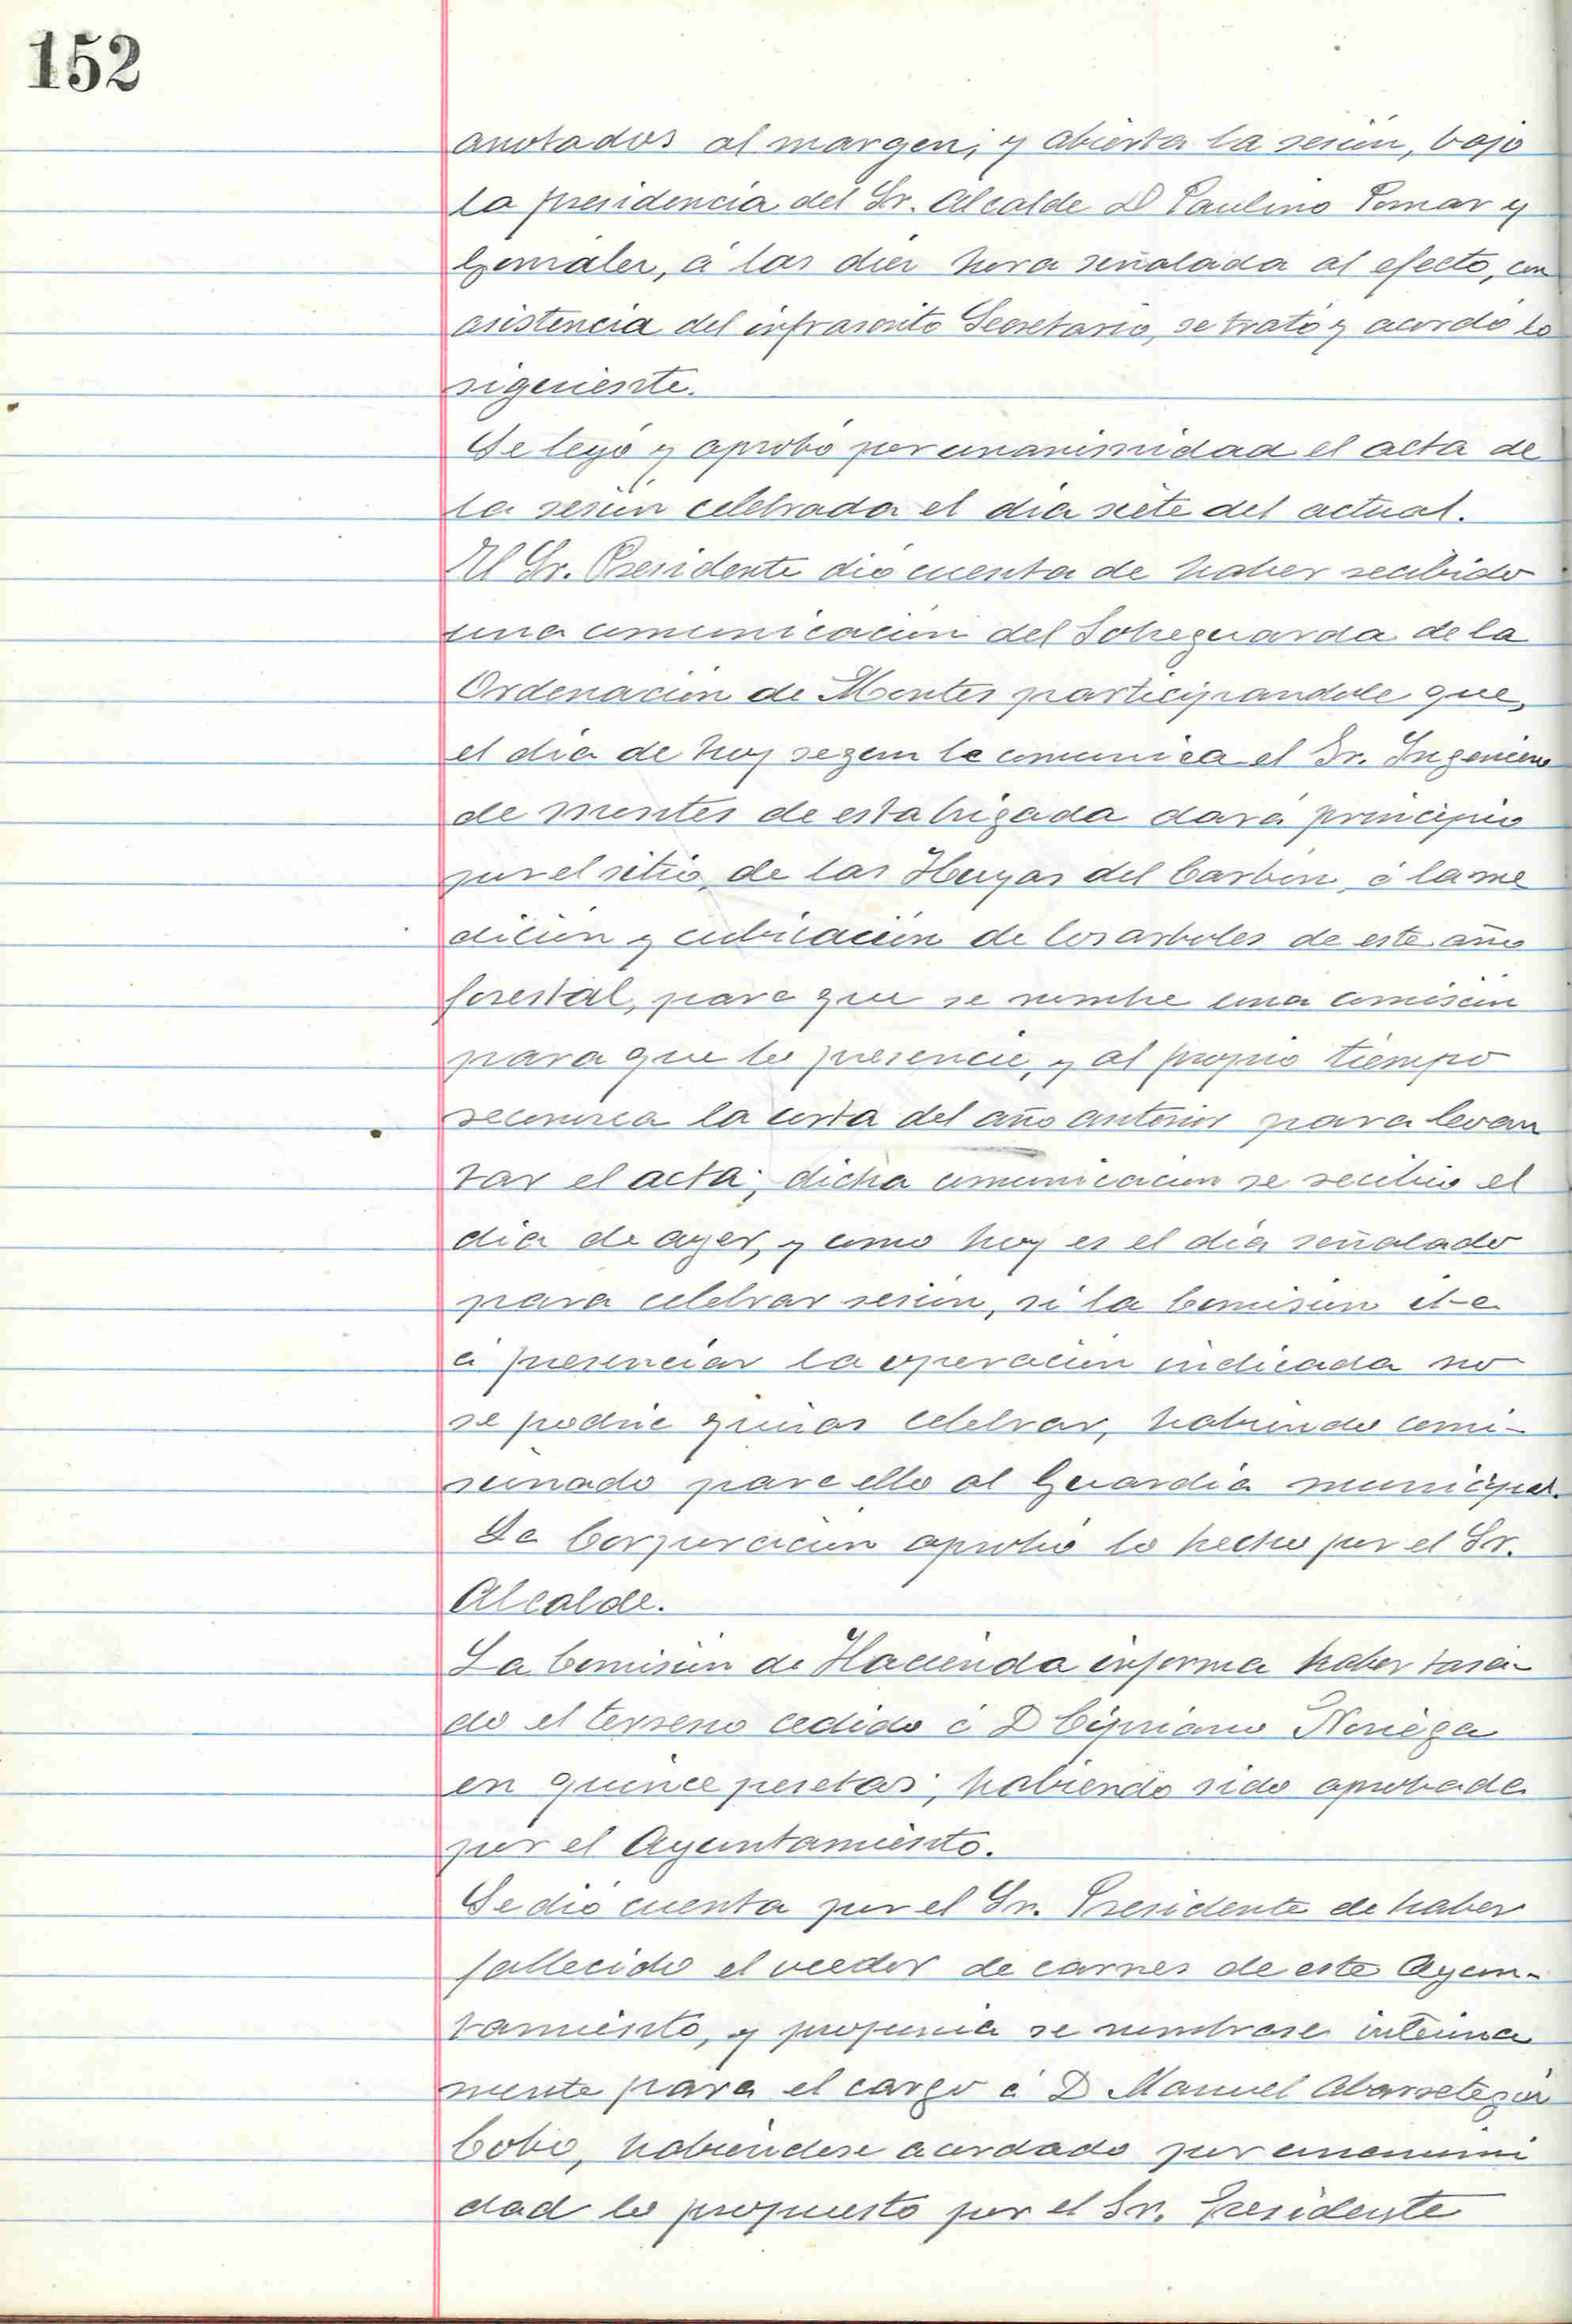 152
anotados al margen; y abierta la sesión, bajo
la presidencia del Sr. Alcalde D Paulino Pomar y
González, á las diez hora señalada al efecto, con
asistencia del infrascrito Secretario, se trató y acordó lo
siguiente.
Se leyó y aprobó por unanimidad el acta de
la sesión celebrada el dia siete del actual.
El Sr. Presidente dió cuenta de haber recibido
una comunicación del Sobreguarda de la
Ordenación de Montes participandole que,
el dia de hoy segun le comunica el Sr. Ingeniero
de montes de esta brigada dará principio
por el sitio de las Huyas del Carbón, á la me
dición y cubicación de los arboles de este año
forestal, para que se nombre una comisión
para que lo presencie, y al propio tiempo
reconozca la corta del año anterior para levan
tar el acta; dicha comunicacion se recibió el
dia de ayer, y como hoy es el dia señalado
para celebrar sesión, si la Comisión
á presenciar la operación indicada no
se podria quizas celebrar, habiendo comi-
sionado para ello al Guardia municipal.
La Corporación aprobó lo hecho por el Sr.
Alcalde.
La Comisión de Hacienda informa haber tasa-
do el terreno cedido á D Cipriano Noriega
en quince pesetas; habiendo sido aprobada
por el Ayuntamiento.
Se dió cuenta por el Sr. Presidente de haber
fallecido el veedor de carnes de este Ayun-
tamiento, y proponia se nombrase interina
mente para el cargo á D Manuel
Cobo, habiendose acordado por unanimi
dad lo propuesto por el Sr. Presidente